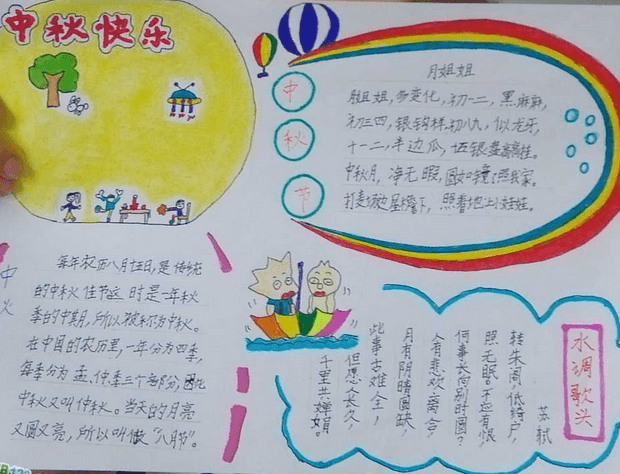 中秋快乐
中
秋
节
月姐姐
月姐姐,多变化,初一二,黑麻麻,
初三四,银钩样.初八九,似龙牙,
十一二,半边瓜,
中秋月,净无暇,圆如镜子照我家。
中
每年农历八月十五日,是传统
的中秋佳节这 时是一年秋
季的中期,所以被称为中秋。
在中国的农历里,一年分为四季,
每季分为孟、仲、季三个部分,因此
中秋又叫仲秋。当天的月亮
又圆又亮,所以叫做"八月节"。
水调歌头
苏轼
转朱阁,低绮户,
照无眠。不应有恨,
何事长向别时圆?
人有悲欢离合,
月有阴晴圆缺,
此事古难全,
但愿人长久,
千里共婵娟。